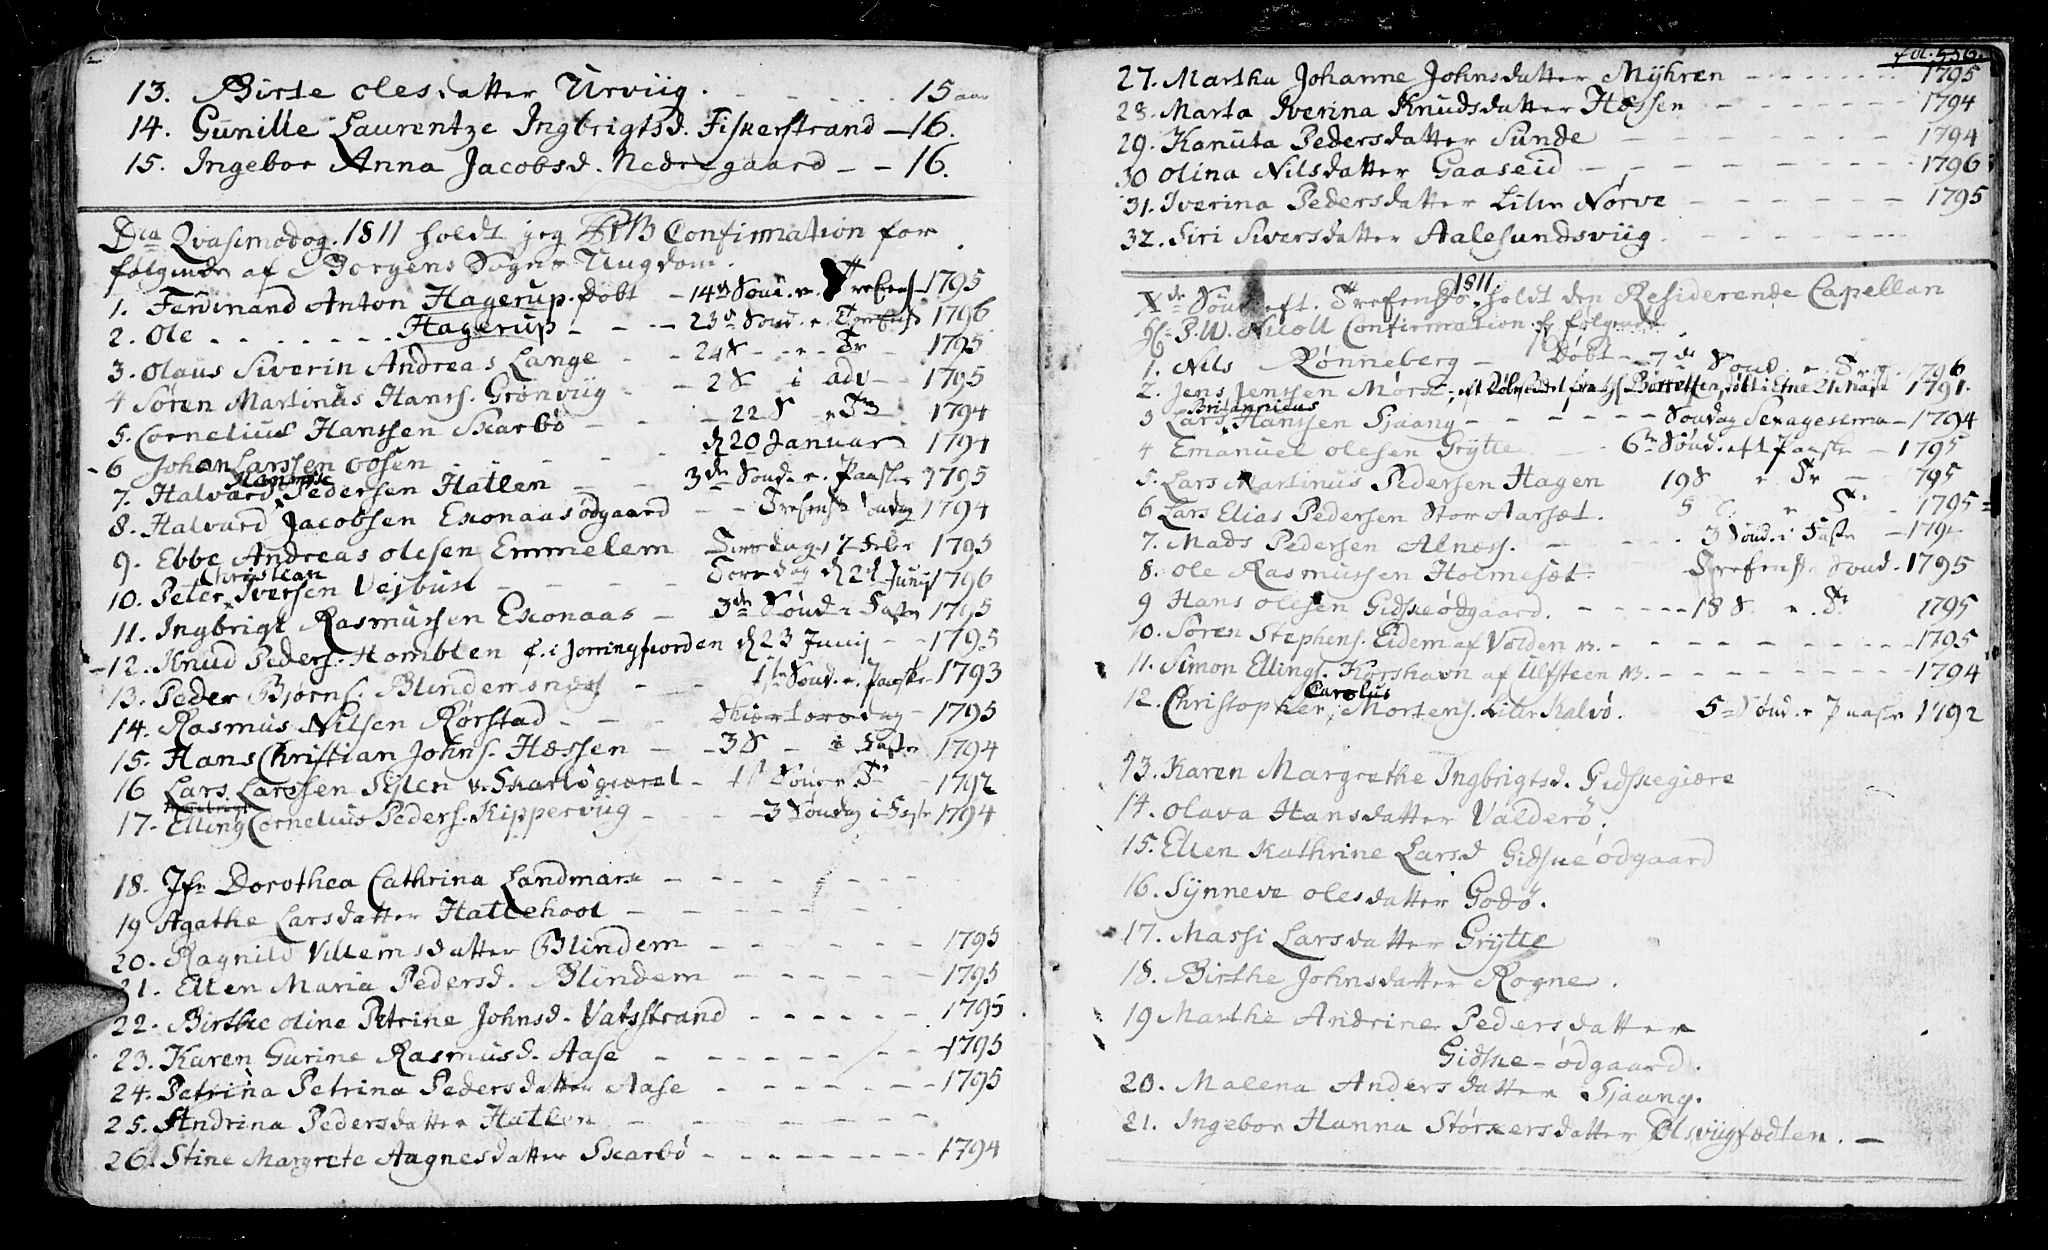 13. Birte olesdatter Urviig. 15 aar
14. Gunille Laurentze Ingbrigtsd. Fiskerstrand - 16.
15. Ingebor Anna Jacobsd. Nedregaard - - 16.
Dca Qvasimodog. 1811 holdt jeg Confirmation for
følgende af Borgens Sogns Ungdom.
1. Ferdinand Anton Hagerup. døbt - 14de Sønd. e. Trefens 1795
2. Ole . . . . . . . Hagerup - - - 23de Sønd. e. 1796
3. Olaus Siverin Andreas Lange - - 24 S - e - Tr 1795
4 Søren Martinus Hanss. Grønviig - - 2 S i adv - 1795
5. Cornelius Hanssen Skarbö - - - 22 S e Tr 1794
6 Johan Larssen oosen - - - d 20 Januar 1794
7. Halvard Pedersen Hatlen - - 3de Sønd. e. Paaske 1795
8. Halvard Jacobsen Exonaas ødgaard - - Trefens Søndag 1794
9. Ebbe Andreas olesen Emmelem Tirsdag 17 Febr 1795
10. Peter Christian Iversen Vejbust - - - - Torsdag d 24 Junij 1796
11. Ingbrigt Rasmussen Exonaas - 3de Sønd i Faste 1795
12. Knud Peders. Homblen f. i Jorringfiorden d 23 Junij - - 1795
13. Peder Bjørns. Blindemsnæs - - 1ste Sønd. e. Paaske 1793
14. Rasmus Nilsen Rørstad - - - Skiær torsdag - 1795
15. Hans Christian Johns. Hessen - - 3 S - i Faste 1794
16 Lars Larssen v. Skarbøgieret - Sønd e Tr 1792
17. Elling Cornelius Peders. Kipperviig - - - 3 Søndag i Faste 1794
18. Jfr Dorothea Cathrina Landmark - - - -
19 Agathe Larsdatter Hattehool - - - - -
20. Ragnild Villemsdatter Blindem - - - - 1795
21. Ellen Maria Pedersd. Blindem - - - - 1795
22. Birthe oline Petrine Johnsd. Vatsstrand - - - - 1795
23. Karen Gurine Rasmusd. Aase - - - - 1795
24. Petrina Petrina Pedersdatter Aase - - - - 1795
25. Andrina Pedersdatter Hatlen - - - -
26. Stine Margrete Aagnesdatter Skarbö - - - - 1794
fol. 556.
27. Martha Johanne Johnsdatter Myhren - - - - 1795
28. Marta Iverina Knudsdatter Hessen - - - - 1794
29. Kanuta Pedersdatter Sunde - - - - 1794
30 Olina Nilsdatter Gaaseid - - - - 1796
31. Iverina Pedersdatter Lille Nørve - - - - 1795
32. Siri Siversdatter Aalesundsviig - - - -
Xde Sønd. eft. Trefens 1811 holdt den Residerende Capellan
Hr. P. W. Nicoll Confirmation f. følgende.
1. Nils Rønneberg - Døbt - 7de Sønd. e. Treg. 1796
2. Jens Jenssen Mørk, eft Døbseddel fra Hr Barretssen, født i Etne 21 Maji 1791.
3 Lars Britannicus Hanssen Sjaang - - - - Søndag Sexagesima - 1794
4 Emanuel olesen Grytte - - 6te Sønd. eft Paaske - 1795
5. Lars Martinus Pedersen Hagen 19 S e Tr - 795
6 Lars Elias Pedersen Stor Aarsæt. 5 S. e Tr - 1795
7. Mads Pedersen Alnæss. - - - 3 Sønd. i Faste - 1794
8. ole Rasmussen Holmesæt - Trefens Sønd. 1795
9 Hans olesen Gidskeødgaard. - - - - 18 S. e. Tr 1795
10. Søren Stephens. Eidem af Volden - - - - 1795
11. Simon Ellings. Korshavn af Ulfsteen - - - - 1794
12. Christopher Carolus Mortens. Lille Kalvö. 5 Sønd. e Paaske 1792
13. Karen Margrethe Ingbrigtsd. Gidskegiære
14. olava Hansdatter Valderö.
15. Ellen Kathrine Larsd Gidskeødgaard
16. Synneve olesdatter Godö.
17. Massi Larsdatter Grytte
18. Birthe Johnsdatter Rogne.
19 Marthe Andrine Pedersdatter
Gidske-ødgaard.
20. Malena Andersdatter Sjaang.
21. Ingebor Hanna Størkersdatter Ølsviigfødlen. -